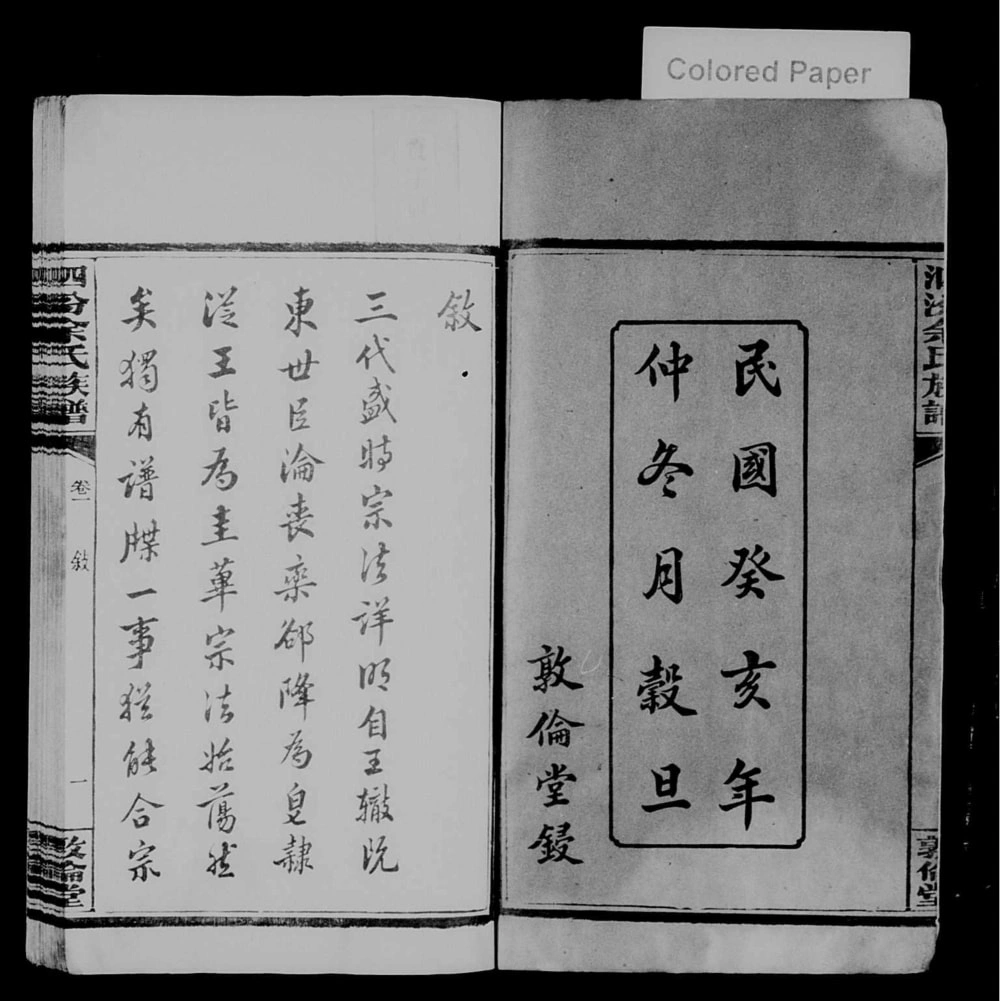 Colored Paper
泗汾余氏族譜
敦倫堂
民國癸亥年
仲冬月穀旦
敦倫堂鋟
敘
三代盛時宗法詳明自王轍既
東世臣淪喪欒郤降為皂隸
從王皆為圭蓽宗法始蕩然
矣獨有譜牒一事猶能合宗
泗汾余氏族譜
卷一
敘
一
敦倫堂